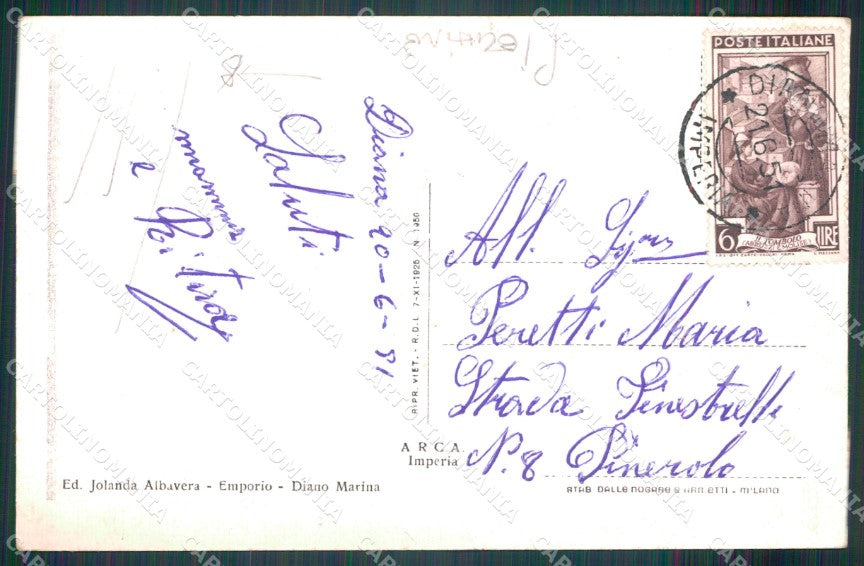 Diana 20-6-51
Saluti
mamma
e Ritina
All. Sig.na
Peretti Maria
Strada Finestrelle
N. 8 Pinerolo
POSTE ITALIANE
6 LIRE
IL TOMBOLO
21.6.51
IMPERIA
RIPR. VIET. - R.D.L. 7-XI-1925 N. 1950
ARCA
Imperia
Ed. Jolanda Albavera - Emporio - Diano Marina
STAB. DALLE NOGARE & ARMETTI - MILANO
CARTOLINOMANIA